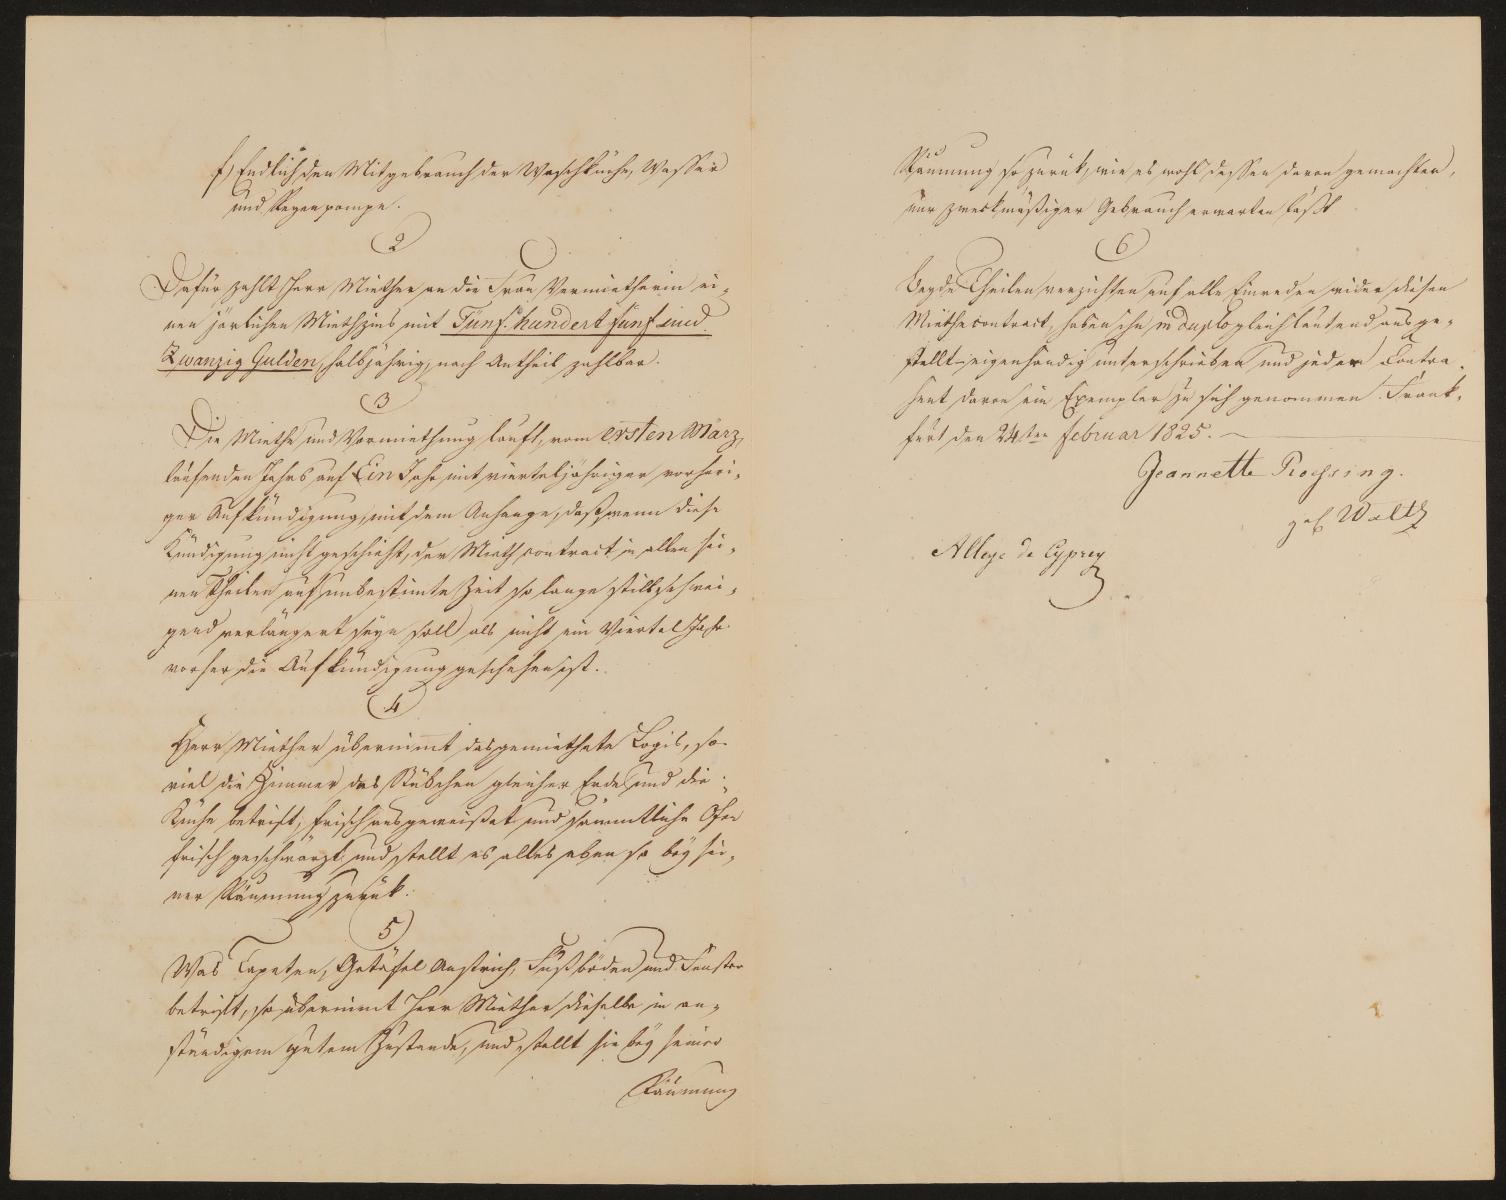 f, Endlich den Mitgebrauch der Waschküche, Wasser
und Regenpompe.
2
Dafür zahlt Herr Miether an die Frau Vermietherin ei-
nen järlichen Miethzins mit Fünf hundert fünf und
Zwanzig Gulden, halbjährig, nach Antheil zahlbar.
3
Die Miethe und Vermiethung lauft, vom ersten März
laufenden Jahrs auf Ein Jahr mit vierteljähriger vorheri-
ger Aufkündigung, mit dem Anhange, daß wenn diese
Kündigung nicht geschieht, der Miethcontract in allen sei-
nen Theilen auf unbestimte Zeit so lange stillschwei-
gend verlängert seyn soll als nicht ein Viertel Jahr
vorher die Aufkündigung geschehen ist.
4
Herr Miether übernimt das gemiethete Logis, so
viel die Zimmer das Stübchen gleicher Erde und die
Küche betrift, frisch ausgeweißet und sämmtliche Ofen
frisch geschwärzt und stellt es alles eben so bey sei-
ner Räumung zurük.
5
Was Tapeten, Getäfel Anstrich, Fußböden und Fenster
betrift, so übernimt Herr Miether dieselbe in an-
ständigem gutem Zustande, und stellt sie bey seiner
Räumung
Räumung so zurük, wie es wohl dessen davon gemachten,
nur zweckmäßiger Gebrauch erwarten läßt
6
Beyde Theilen verzichten auf alle Einreden wider diesen
Miethcontract, haben ihn in duplo gleichlautend ausge-
stellt eigenhändig unterschrieben und jeder Contra-
hent davon ein Exemplar zu sich genommen. Frank-
furt den 24ten februar 1825.
Jeannette Roessing.
geb Waltz
Alleye de Cyprey